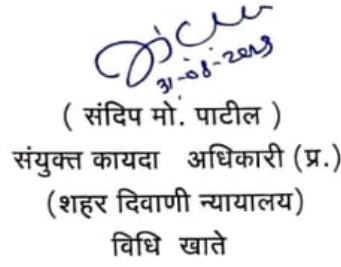 ३१-०८-२०२३
( संदिप मो. पाटील )
संयुक्त कायदा अधिकारी (प्र.)
(शहर दिवाणी न्यायालय)
विधि खाते